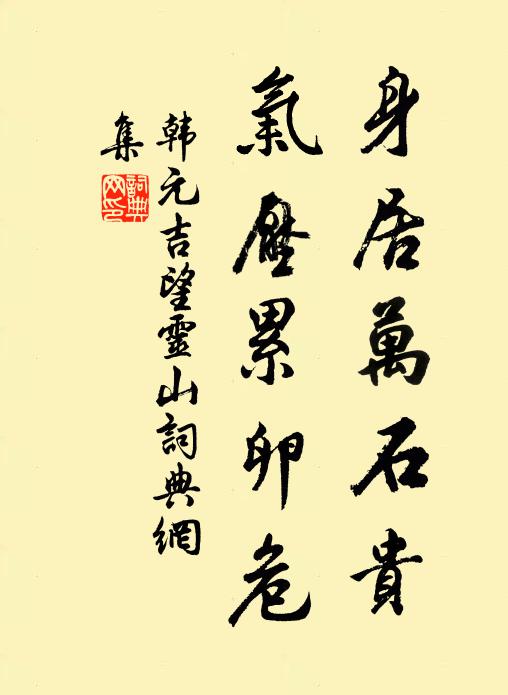 身居萬石貴
氣壓累卵危
韓元吉望靈山詞典網
集
詞典
网印